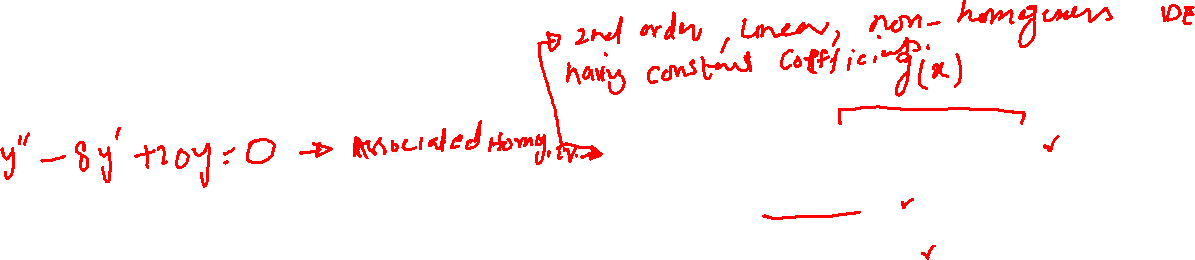 2nd order, Linear, non-homogenous DE
having constant coefficients.
g(x)
y'' - 8y' + 20y = 0 → Associated Homg.